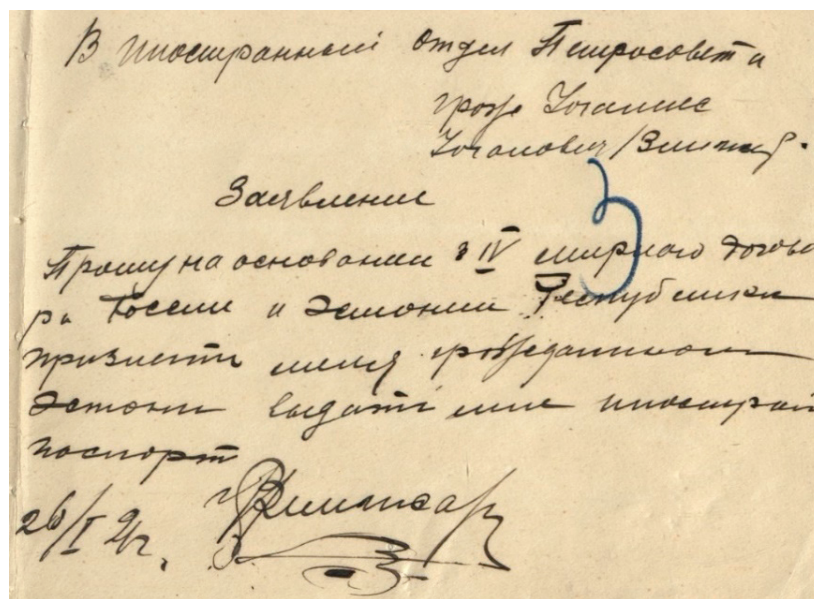 В иностранный отдел Петросовета
гр Иоганнес
Иоганович
Заявление
Прошу на основании § IV мирного догово
ра России и Эстонии Республики
признать меня гражданином
Эстонии выдать мне иностран
паспорт
26/I 21 г.